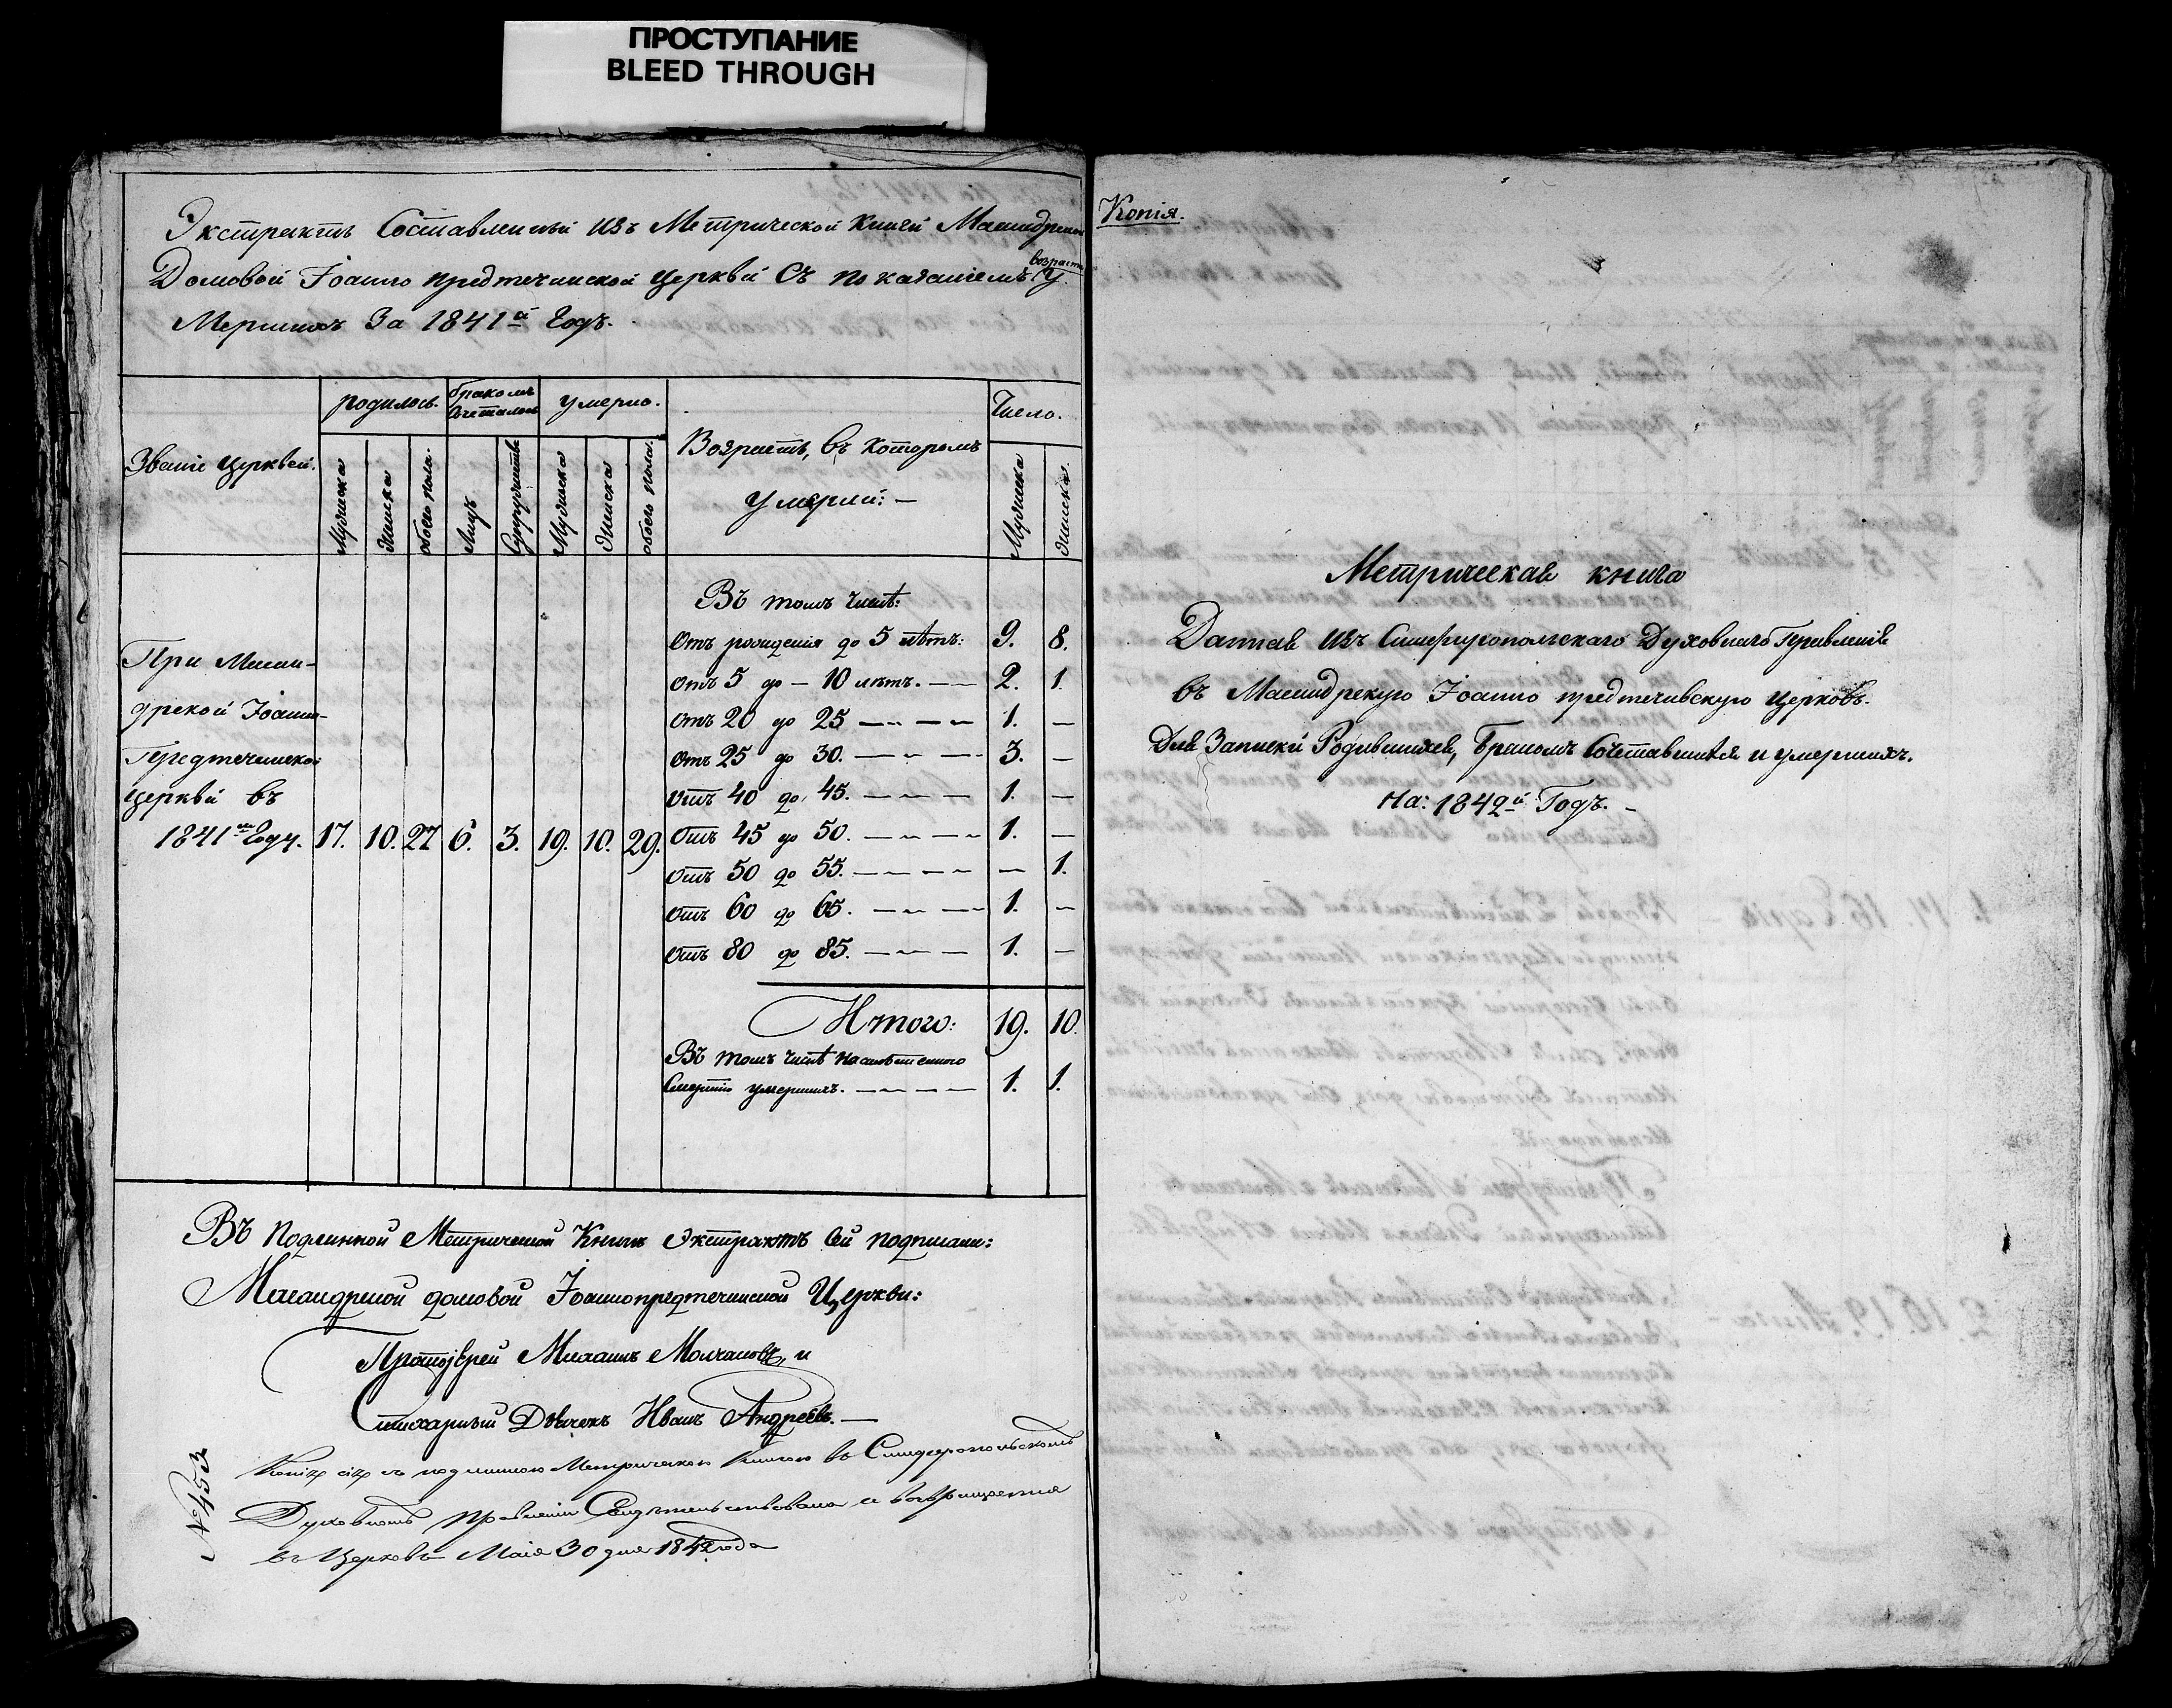 ПРОСТУПАНИЕ
BLEED THROUGH
Экстрактъ Составленный Изъ Метрической Книги Масандрской
Домовой Іоанно предтечинской церкви Съ показаніемъ возраста У
Мершихъ За 1841й Годъ.
Званіе церквей.
родилось.
бракомъ Сочеталось
умерло.
Возрастъ, въ которомъ
умерли: —
Число.
Мужеска
Женска
обоего пола.
Лицъ
Супружествъ
Мужеска
Женска
обоего пола.
Мужеска
Женска.
Въ томъ числѣ:
Отъ рожденія до 5 лѣтъ: 9. 8.
Отъ 5 до — 10 лѣтъ. — 2. 1.
Отъ 20 до 25 — 1. —
Отъ 25 до 30. — 3. —
Отъ 40 до 45. — 1. —
Отъ 45 до 50. — 1. —
Отъ 50 до 55. — — 1.
Отъ 60 до 65. — 1. —
Отъ 80 до 85. — 1. —
При Масан-
дрской Іоанно-
Предтечинской
церкви въ
1841мъ Году. 17. 10. 27 6. 3. 19. 10. 29.
Итого: 19. 10.
Въ томъ числѣ насильственною
Смертію умершихъ. — 1. 1.
Въ Подлинной Метрической Книгѣ Экстрактъ Сей подписали:
Масандрской домовой Іоаннопредтечинской Церкви:
Протоіерей Михаилъ Молчановъ, и
Стихарный Дьячекъ Иванъ Андреевъ. —
№ 453
Копія сія съ подлинною Метрическою Книгою въ Симферопольскомъ
Духовномъ Правленіи Свидѣтельствована и возвращается
въ Церковь Маія 30 дня 1842 года
Копія.
Метрическая книга
Данная Изъ Симферопольскаго Духовнаго Правленія
въ Масандрскую Іоанно предтечивскую Церковь.
Для Записки Родившихся, бракомъ Сочетавшихся и умершихъ.
На: 1842й Годъ. —